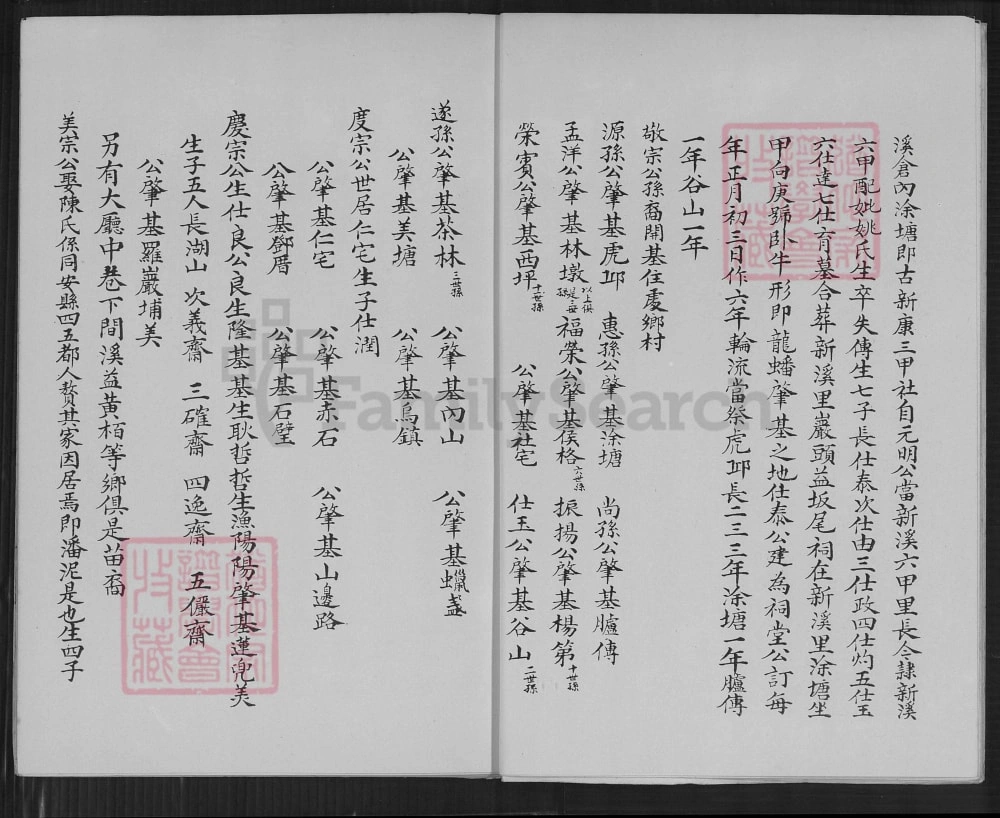 溪倉內涂塘即古新康三甲社自元明公當新溪六甲里長今隸新溪
六甲配妣姚氏生卒失傳生七子長仕泰次仕由三仕政四仕灼五仕玉
六仕達七仕育墓合葬新溪里巖頭益坂尾祠在新溪里涂塘坐
甲向庚號臥牛形即龍蟠肇基之地仕泰公建為祠堂公訂每
年正月初三日作六年輪流當祭虎邱長二三三年涂塘一年臚傳
一年谷山一年
敬宗公孫裔開基住處鄉村
源孫公肇基虎邱 惠孫公肇基涂塘 尚孫公肇基臚傳
孟洋公肇基林墩以上俱是二世孫 福榮公肇基侯格六世孫 振揚公肇基楊第十世孫
榮賓公肇基西坪十一世孫 公肇基社宅 仕玉公肇基谷山二世孫
遂孫公肇基茶林三世孫 公肇基內山 公肇基蠟盞
公肇基美塘 公肇基烏鎮
度宗公世居仁宅生子仕潤
公肇基仁宅 公肇基赤石 公肇基山邊路
公肇基鄧厝 公肇基石壁
慶宗公生仕良公良生隆基基生耿哲哲生漁陽陽肇基蓮兜美
生子五人長湖山 次義齋 三確齋 四逸齋 五儼齋
公肇基羅巖埔美
另有大廳中巷下間溪益黃栢等鄉俱是苗裔
美宗公娶陳氏係同安縣四五都人贅其家因居焉即潘泥是也生四子
FamilySearch